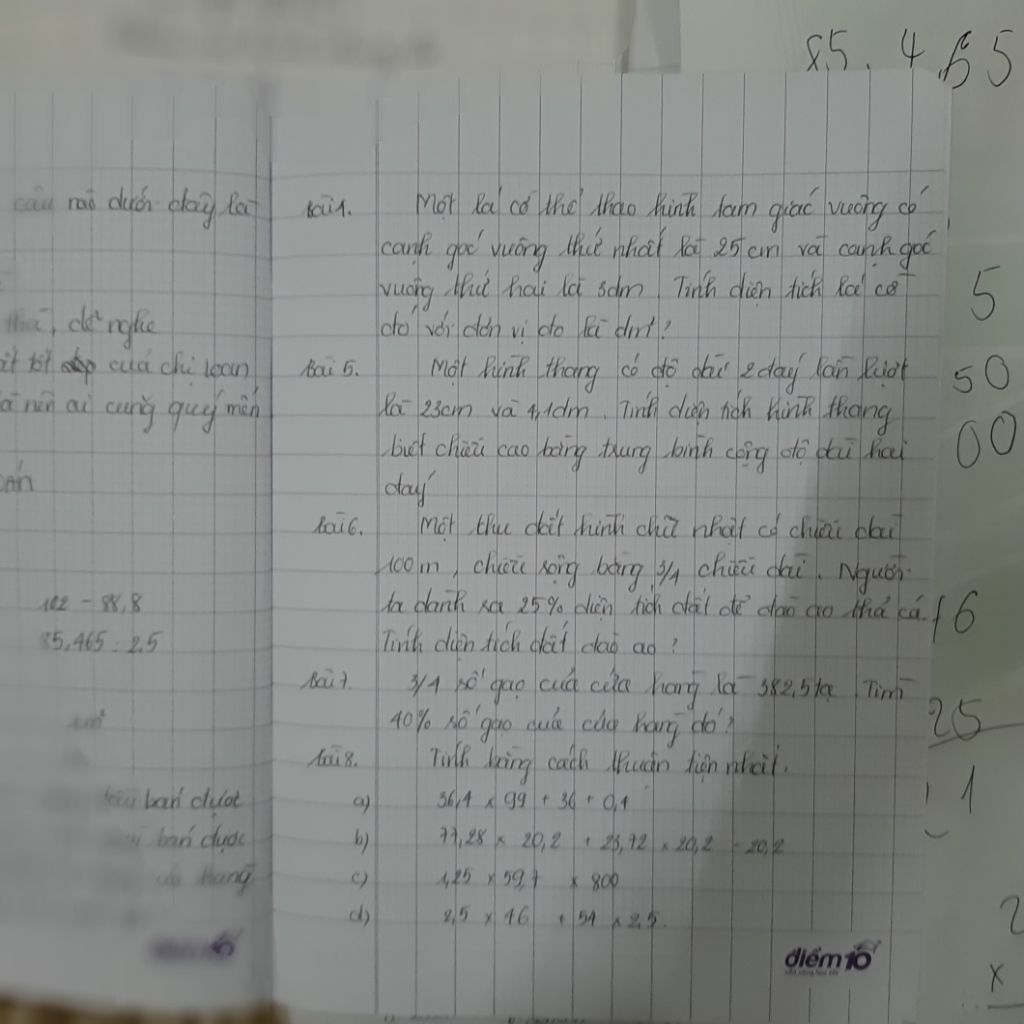 85.465
câu nào dưới đây là
thà, dễ nghe
ít tốt đẹp của chị Loan
à nên ai cũng quý mến
102 - 88,8
85,465 : 2,5
bán được
bán được
hàng
Bài 4. Một lá cờ thể thao hình tam giác vuông có
cạnh góc vuông thứ nhất là 25 cm và cạnh góc
vuông thứ hai là 3dm. Tính diện tích lá cờ
đó với đơn vị đo là dm²?
Bài 5. Một hình thang có độ dài 2 đáy lần lượt
là 23cm và 4,1dm. Tính diện tích hình thang
biết chiều cao bằng trung bình cộng độ dài hai
đáy
Bài 6. Một thửa đất hình chữ nhật có chiều dài
100m, chiều rộng bằng 3/4 chiều dài. Người
ta dành ra 25% diện tích đất để đào ao thả cá.
Tính diện tích đất đào ao?
Bài 7. 3/4 số gạo của cửa hàng là 382,5 tạ. Tính
40% số gạo của cửa hàng đó?
Bài 8. Tính bằng cách thuận tiện nhất.
a) 36,4 x 99 + 36 + 0,4
b) 77,28 x 20,2 + 23,72 x 20,2 - 20,2
c) 1,25 x 59,7 x 800
d) 2,5 x 46 + 54 x 2,5.
điểm 10
5
50
00
16
25
1
2
x